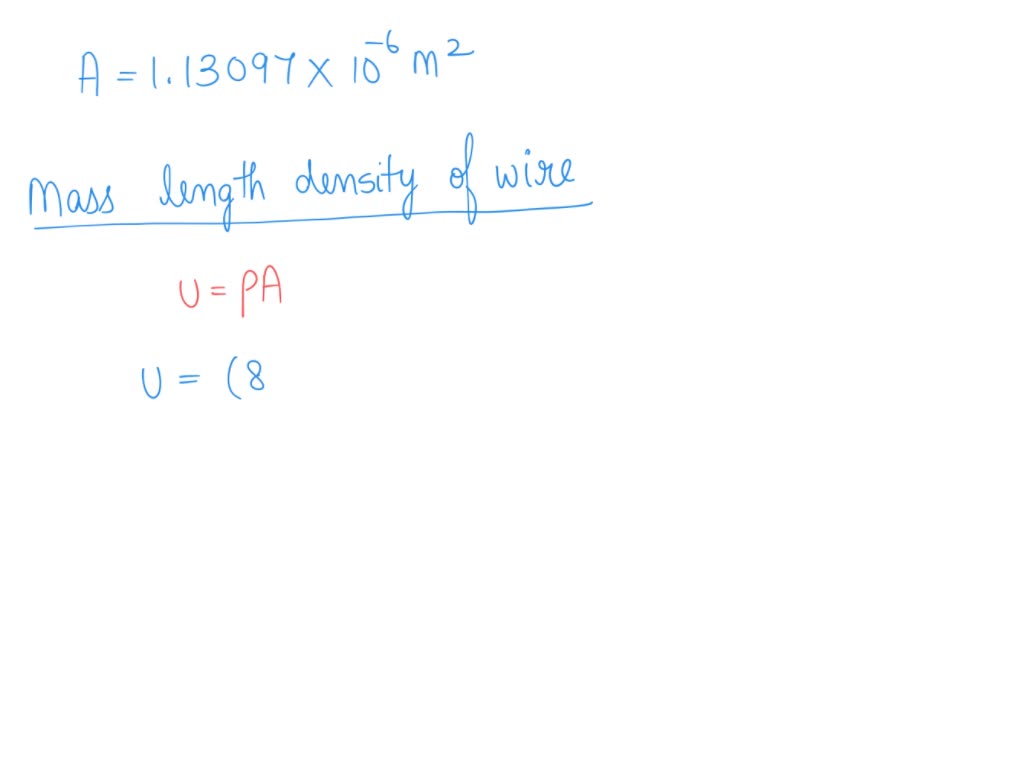 A = 1.13097 × 10⁻⁶ m²
Mass length density of wire
U = ρA
U = (8